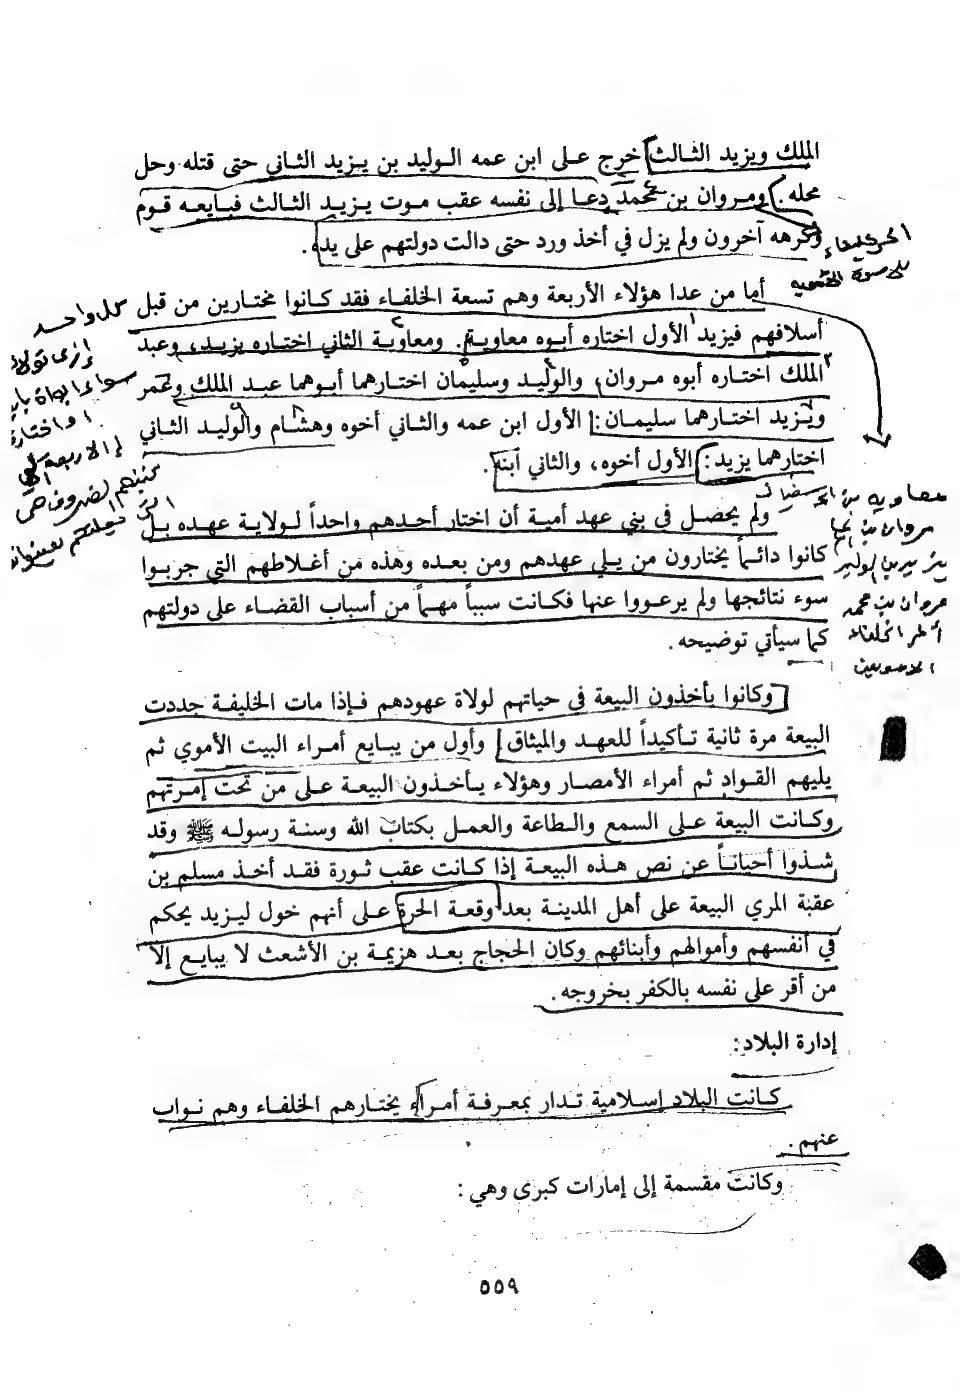 الملك ويزيد الثالث خرج على ابن عمه الوليد بن يزيد الثاني حتى قتله وحل
محله. ومروان بن محمد دعا إلى نفسه عقب موت يزيد الثالث فبايعه قوم
وكرهه آخرون ولم يزل في أخذ ورد حتى دالت دولتهم على يده.
أما من عدا هؤلاء الأربعة وهم تسعة الخلفاء فقد كانوا مختارين من قبل
أسلافهم فيزيد الأول اختاره أبوه معاوية. ومعاوية الثاني اختاره يزيد، وعبد
الملك اختاره أبوه مروان، والوليد وسليمان اختارهما أبوهما عبد الملك وعمر
ويزيد اختارهما سليمان: الأول ابن عمه والثاني أخوه وهشام والوليد الثاني
اختارهما يزيد: الأول أخوه، والثاني ابنه.
ولم يحصل في بني عهد أمية أن اختار أحدهم واحداً لولاية عهده بل
كانوا دائماً يختارون من يلي عهدهم ومن بعده وهذه من أغلاطهم التي جربوا
سوء نتائجها ولم يرعووا عنها فكانت سبباً مهماً من أسباب القضاء على دولتهم
كما سيأتي توضيحه.
وكانوا يأخذون البيعة في حياتهم لولاة عهودهم فإذا مات الخليفة جددت
البيعة مرة ثانية تأكيداً للعهد والميثاق وأول من يبايع أمراء البيت الأموي ثم
يليهم القواد ثم أمراء الأمصار وهؤلاء يأخذون البيعة على من تحت إمرتهم
وكانت البيعة على السمع والطاعة والعمل بكتاب الله وسنة رسوله ﷺ وقد
شذوا أحياناً عن نص هذه البيعة إذا كانت عقب ثورة فقد أخذ مسلم بن
عقبة المري البيعة على أهل المدينة بعد وقعة الحرة على أنهم خول ليزيد يحكم
في أنفسهم وأموالهم وأبنائهم وكان الحجاج بعد هزيمة بن الأشعث لا يبايع إلا
من أقر على نفسه بالكفر بخروجه.
إدارة البلاد:
كانت البلاد إسلامية تدار بمعرفة أمراء يختارهم الخلفاء وهم نواب
عنهم.
وكانت مقسمة إلى إمارات كبرى وهي:
٥٥٩
كل واحد
معاويه بن
مروان بن
يزيد بن الوليد
مروان بن محمد
الخلفاء
الامويين